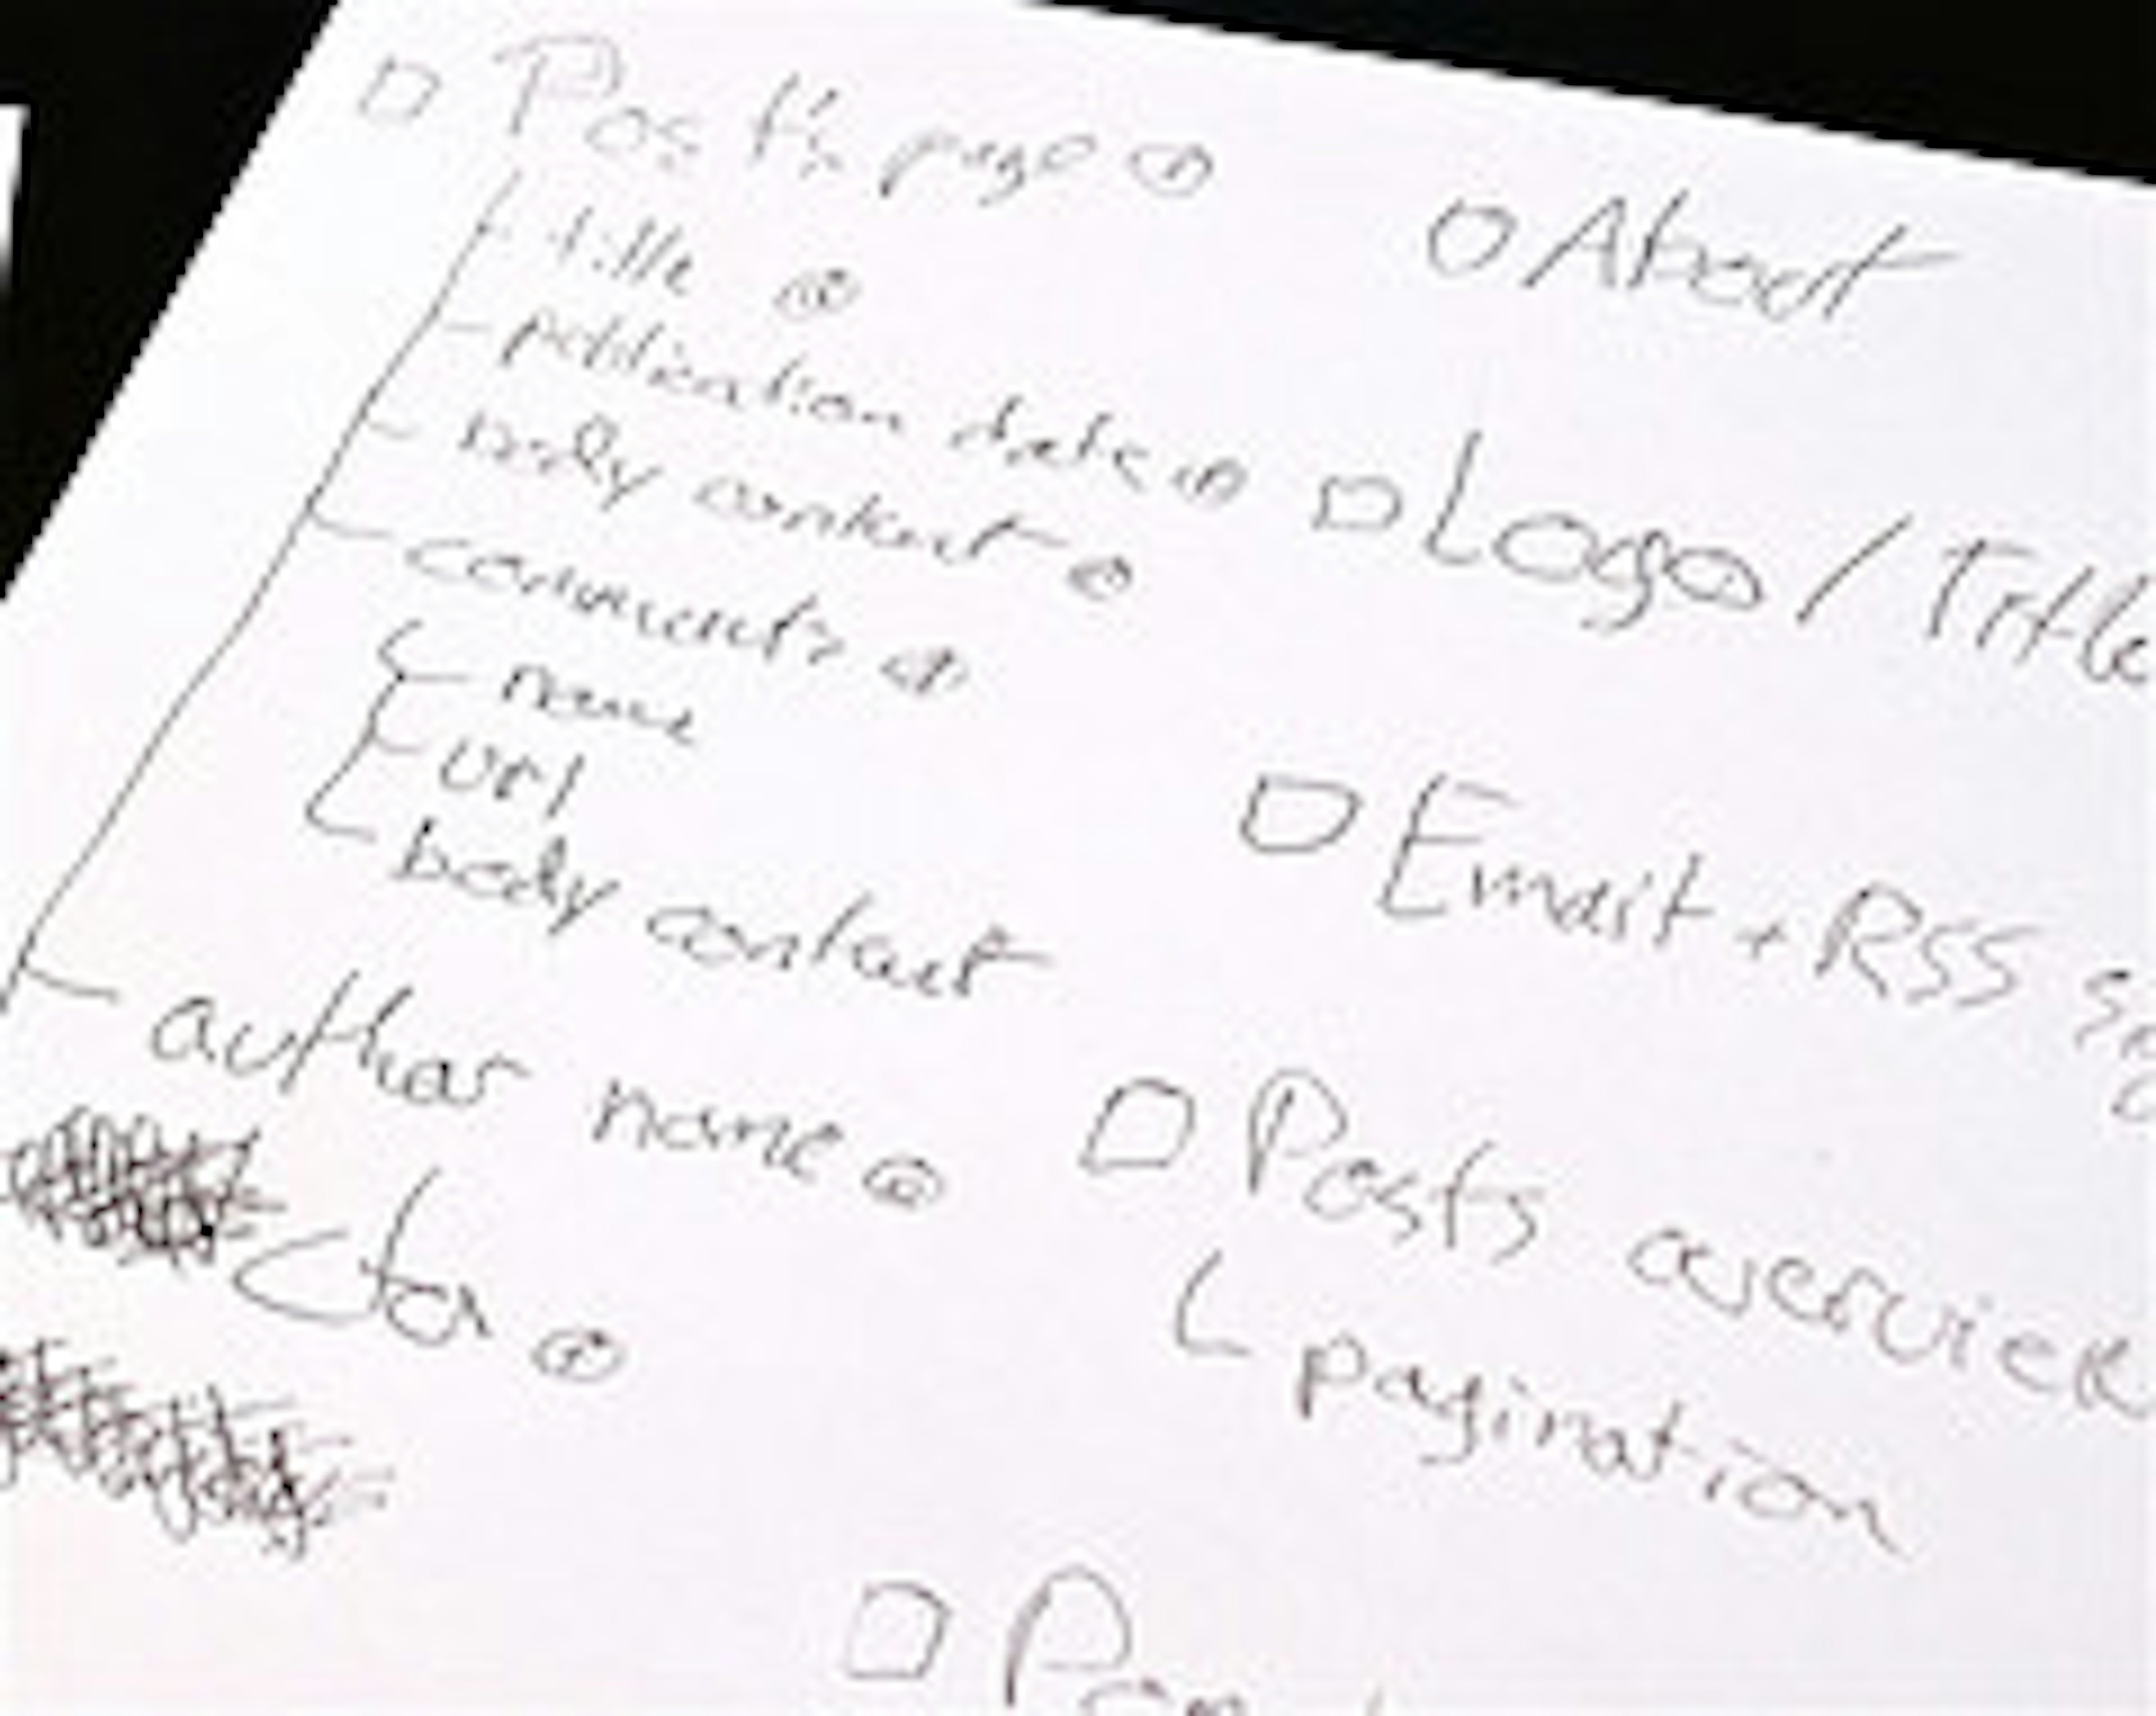 Post's page
title
publication date
body content
comments
name
url
body content
author name
About
Logo / Title
Email + RSS
Posts overview
pagination